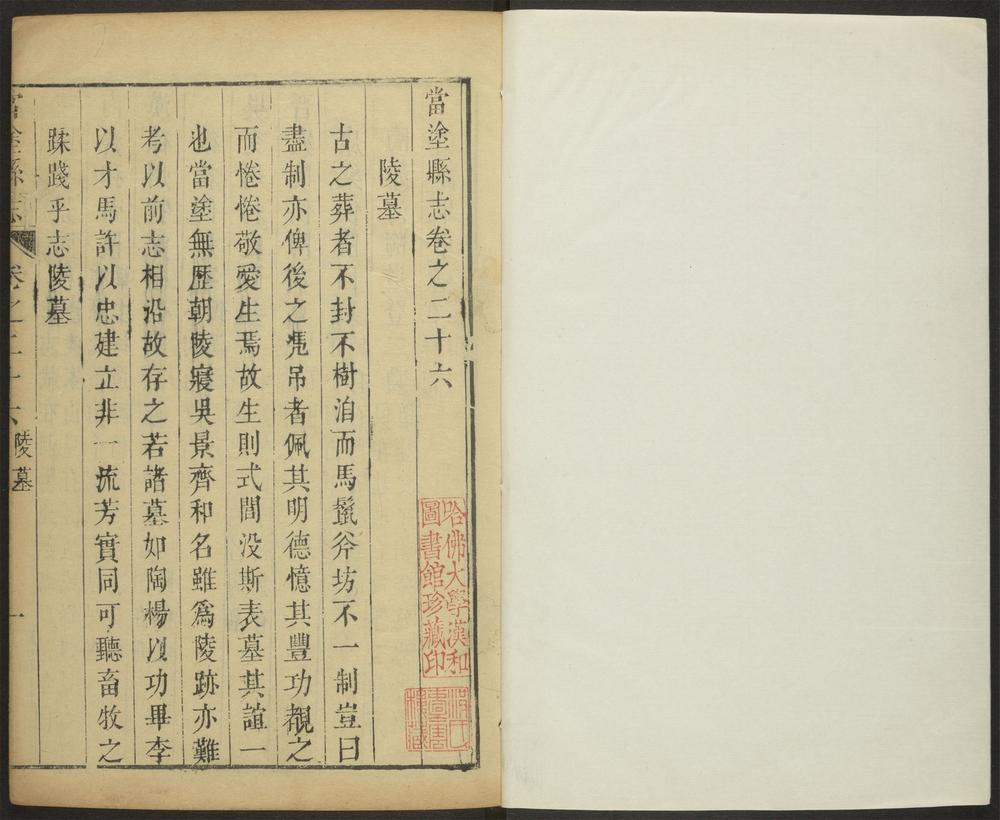 當塗縣志卷之二十六
陵墓
古之葬者不封不樹洎而馬鬛斧坊不一制豈曰
盡制亦俾後之凭吊者佩其明德憶其豐功覩之
而惓惓敬愛生焉故生則式閭没斯表墓其誼一
也當塗無歷朝陵寢吳景齊和名雖爲陵跡亦難
考以前志相沿故存之若諸墓如陶楊以功畢李
以才馬許以忠建立非一流芳實同可聽畜牧之
蹂踐乎志陵墓
當塗縣志
卷之二十六
陵墓
一
哈佛大學漢和
圖書館珍藏印